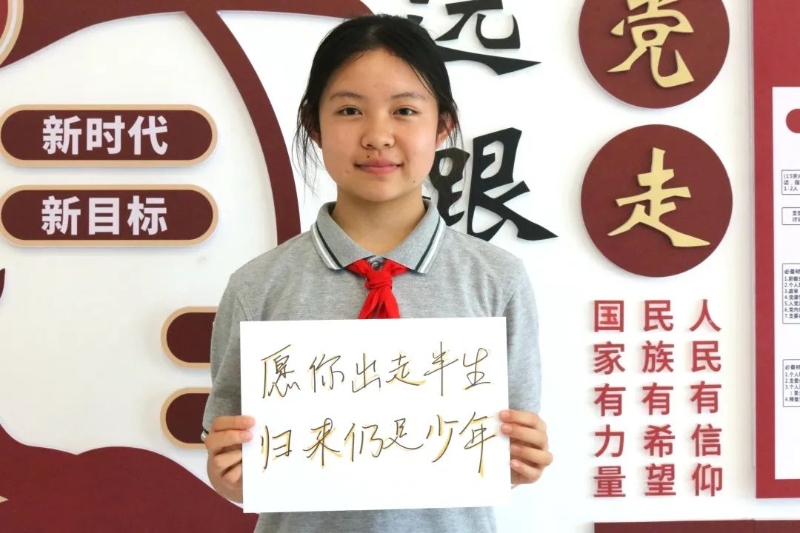 新时代
新目标
远
跟
党
走
人民有信仰
民族有希望
国家有力量
愿你出走半生
归来仍是少年